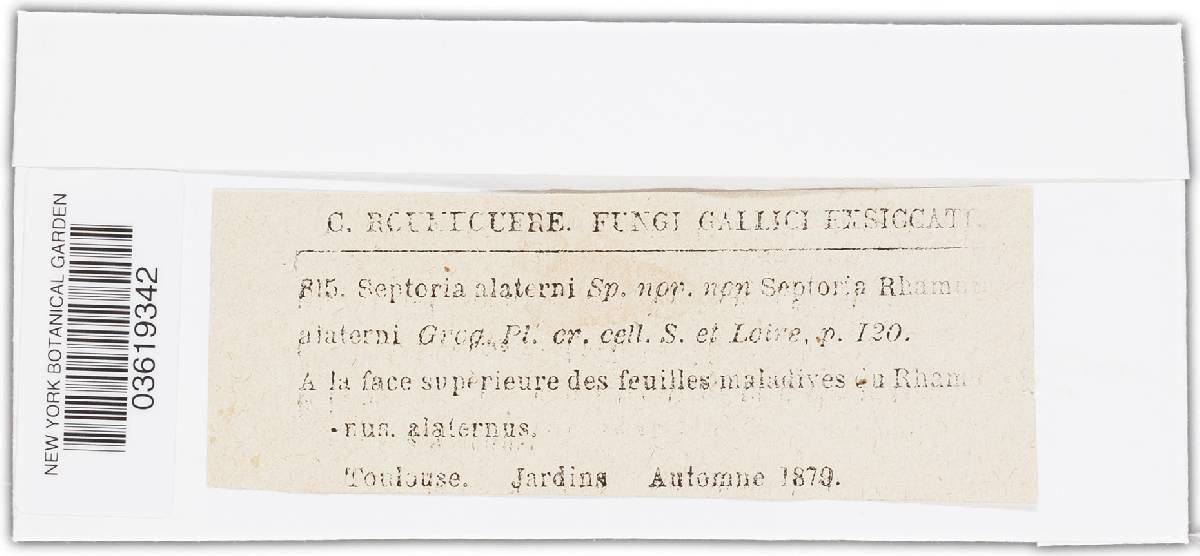 NEW YORK BOTANICAL GARDEN
03619342
C. ROUMEGUERE. FUNGI GALLICI EXSICCATI.
815. Septoria alaterni Sp. nov. non Septoria Rhamni
alaterni Grog. Pl. cr. cell. S. et Loire, p. 120.
A la face supérieure des feuilles maladives du Rham-
-nus. alaternus.
Toulouse. Jardins Automne 1879.